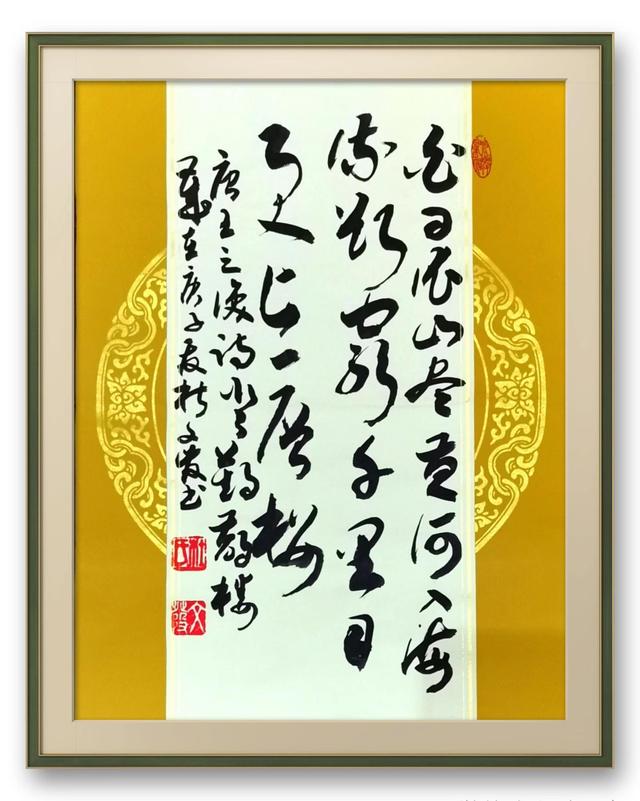 白日依山尽黄河入海
流欲穷千里目
更上一层楼
唐王之涣诗登鹳雀楼
岁在庚子夏杜文发书
杜氏
文發